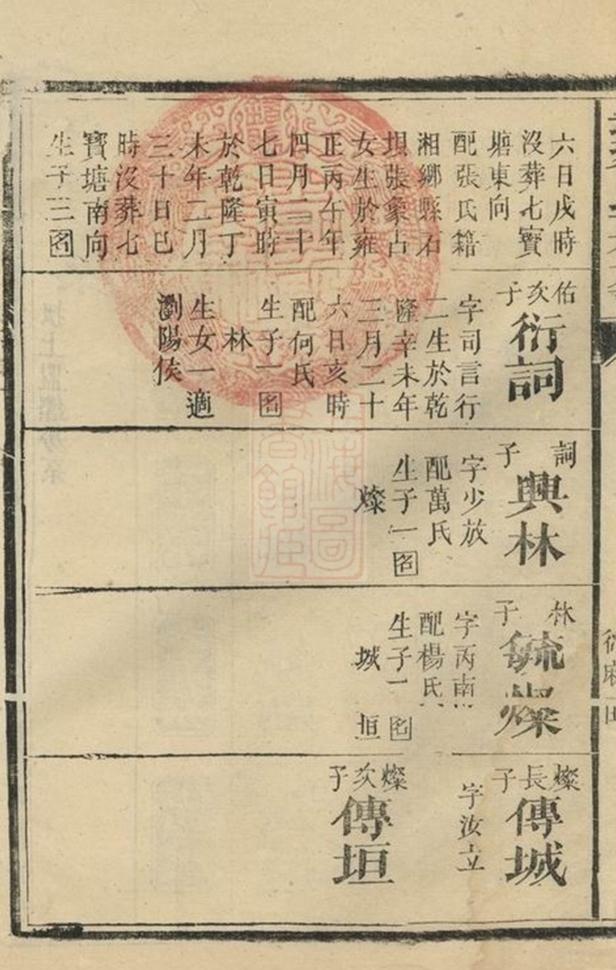 六日戌時
沒葬七寶
塘東向
配張氏籍
湘鄉縣石
坝張象占
女生於雍
正丙午年
四月二十
七日寅時
於乾隆丁
未年二月
三十日巳
時沒葬七
寶塘南向
生子三名
佑次子
衍詞
字司言行
二生於乾
隆辛未年
三月二十
六日亥時
配何氏
生子一名
林
生女一適
瀏陽侯
詞子
興林
字少放
配萬氏
生子一名
燦
林子
毓燦
字丙南
配楊氏
生子 名
城 垣
燦長子
傳城
字汝立
燦次子
傳垣